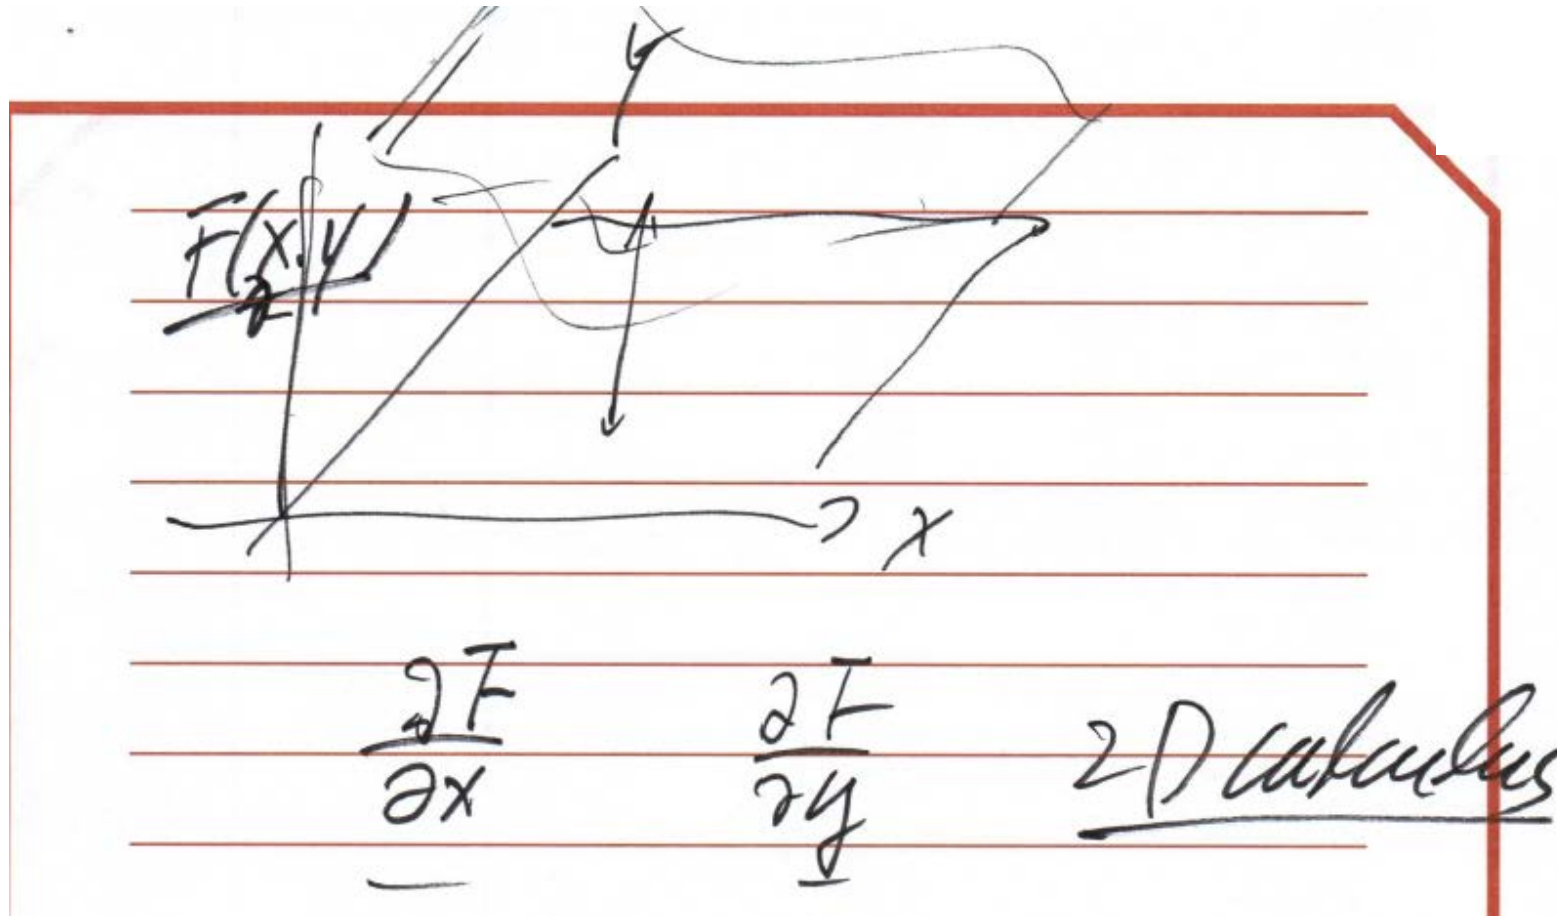 y
F(x,y)
2
x
∂F/∂x ∂F/∂y 2D calculus